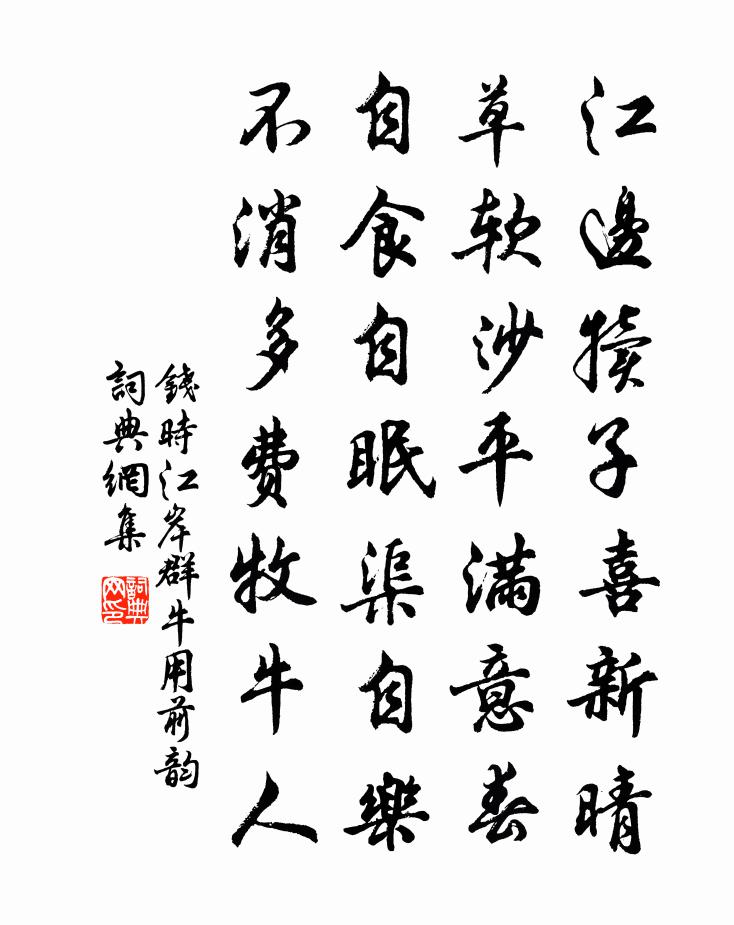 江邊犢子喜新晴
草軟沙平滿意春
自食自眠渠自樂
不消多費牧牛人
錢時江岸群牛用前韵
詞典網集
詞典
网印